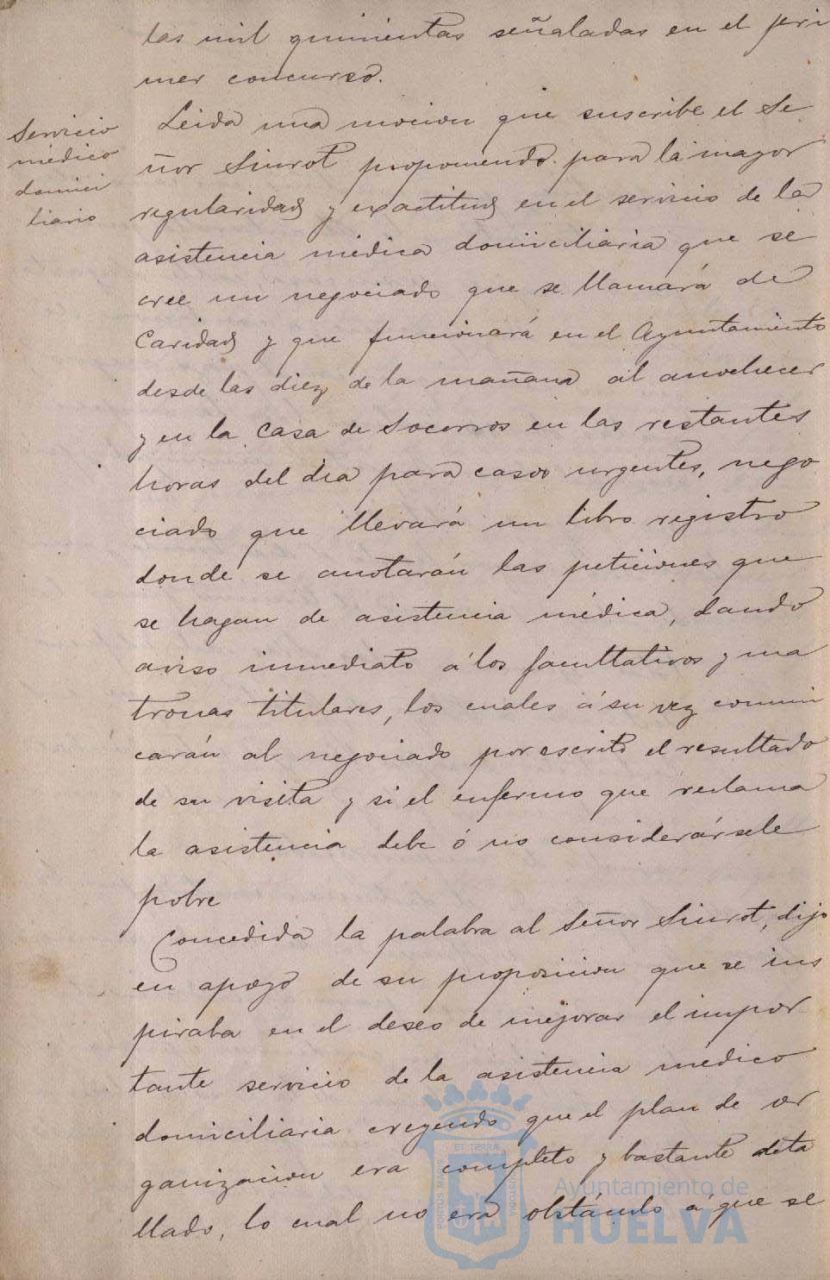 las mil quinientas señaladas en el pri
mer concurso.
Servicio
médico
domici
liario
Leida una mocion que suscribe el Se
ñor Siurot proponiendo para la mayor
regularidad y exactitud en el servicio de la
asistencia médica domiciliaria que se
cree un negociado que se llamará de
Caridad y que funcionará en el Ayuntamiento
desde las diez de la mañana al anochecer
y en la Casa de Socorros en las restantes
horas del dia para casos urgentes, nego
ciado que llevará un libro registro
donde se anotarán las peticiones que
se hagan de asistencia médica, dando
aviso inmediato á los facultativos y ma
tronas titulares, los cuales á su vez comuni
carán al negociado por escrito el resultado
de su visita y si el enfermo que reclama
la asistencia debe ó no considerársele
pobre
Concedida la palabra al Señor Siurot, dijo
en apoyo de su proposicion que se ins
piraba en el deseo de mejorar el impor
tante servicio de la asistencia medico
domiciliaria creyendo que el plan de or
ganizacion era completo y bastante deta
llado, lo cual no era obstáculo á que se
Ayuntamiento de
HUELVA